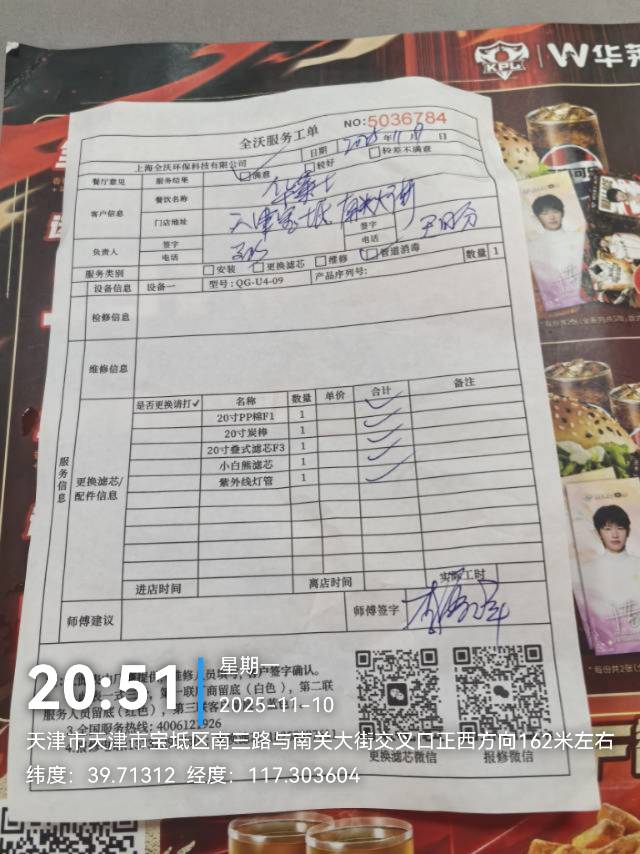 KPL
W华莱
全沃服务工单
NO:5036784
上海全沃环保科技有限公司
日期 2025年11月9日
餐厅意见 服务结果 满意 较好 较差不满意
客户信息 餐饮名称 华莱士
门店地址 天津宝坻南关大街
负责人 签字 签字
电话 电话
服务类别 安装 更换滤芯 维修 管道消毒
设备信息 设备一 型号:QG-U4-09 产品序列号: 数量 1
检修信息
维修信息
服务信息
更换滤芯/配件信息
是否更换请打✓ 名称 数量 单价 合计 备注
20寸PP棉F1 1 ✓
20寸炭棒 1 ✓
20寸叠式滤芯F3 1 ✓
小白熊滤芯 1 ✓
紫外线灯管 1 ✓
进店时间 离店时间 实际工时
师傅建议 师傅签字
签字确认。
第一联厂商留底（白色），第二联
服务人员留底（红色），第三联客
3.全国服务热线:4006121926
更换滤芯微信 报修微信
20:51
星期一
2025-11-10
天津市天津市宝坻区南三路与南关大街交叉口正西方向162米左右
纬度：39.71312 经度：117.303604